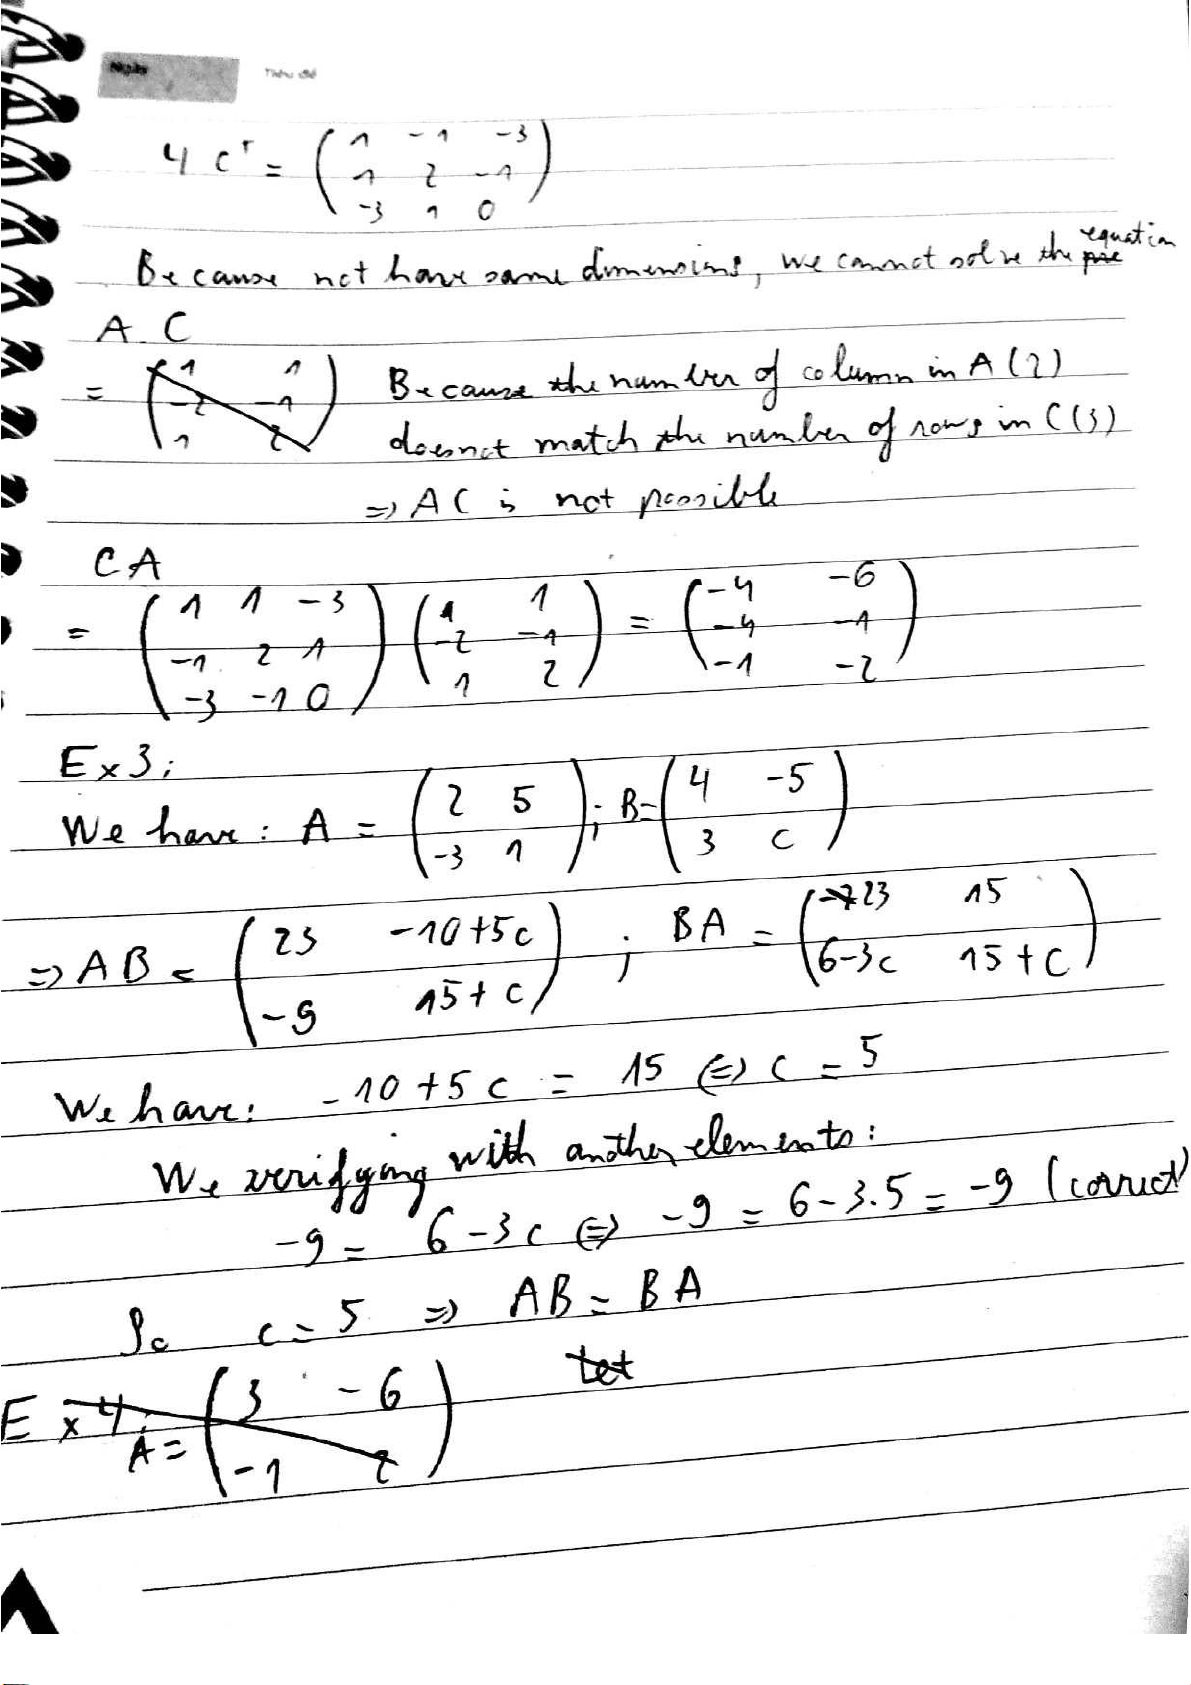 Ngày Tiêu đề
4 Cᵀ = ( 1 -1 -3
1 2 -1
-3 1 0 )
Because not have same dimensions, we cannot solve the equation
A. C
= ( 1 1
-2 -1
1 2 )
Because the number of column in A (2)
doesnot match the number of rows in C (3)
=> AC is not possible
CA
= ( 1 1 -3
-1 2 1
-3 -1 0 ) ( 1 1
-2 -1
1 2 ) = ( -4 -6
-4 -1
-1 -2 )
Ex 3:
We have: A = ( 2 5
-3 1 ) ; B = ( 4 -5
3 c )
=> AB = ( 23 -10+5c
-9 15+c ) ; BA = ( 23 15
6-3c 15+c )
We have: -10+5c = 15 <=> c = 5
We verifying with another elements:
-9 = 6-3c <=> -9 = 6-3.5 = -9 (correct)
So c = 5 => AB = BA
let
Ex 4:
A = ( 3 -6
-1 2 )